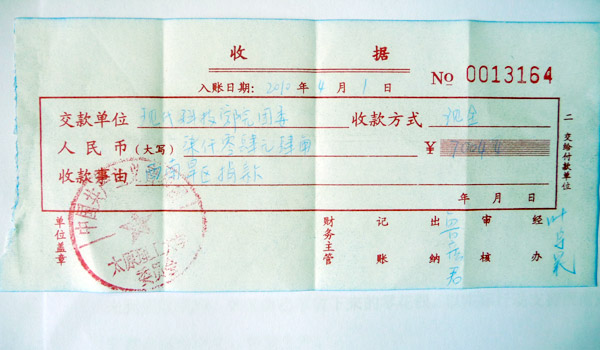 收 据
入账日期: 2010 年 4 月 1 日
No 0013164
交款单位 现代科技学院团委 收款方式 现金
人民币 (大写) 柒仟零肆元肆角 ¥ 7004.4
收款事由 西南旱区捐款
年 月 日
单位盖章
财务主管 记账 出纳 审核 经办
二 交给付款单位
中国共
太原理工大学
委员会